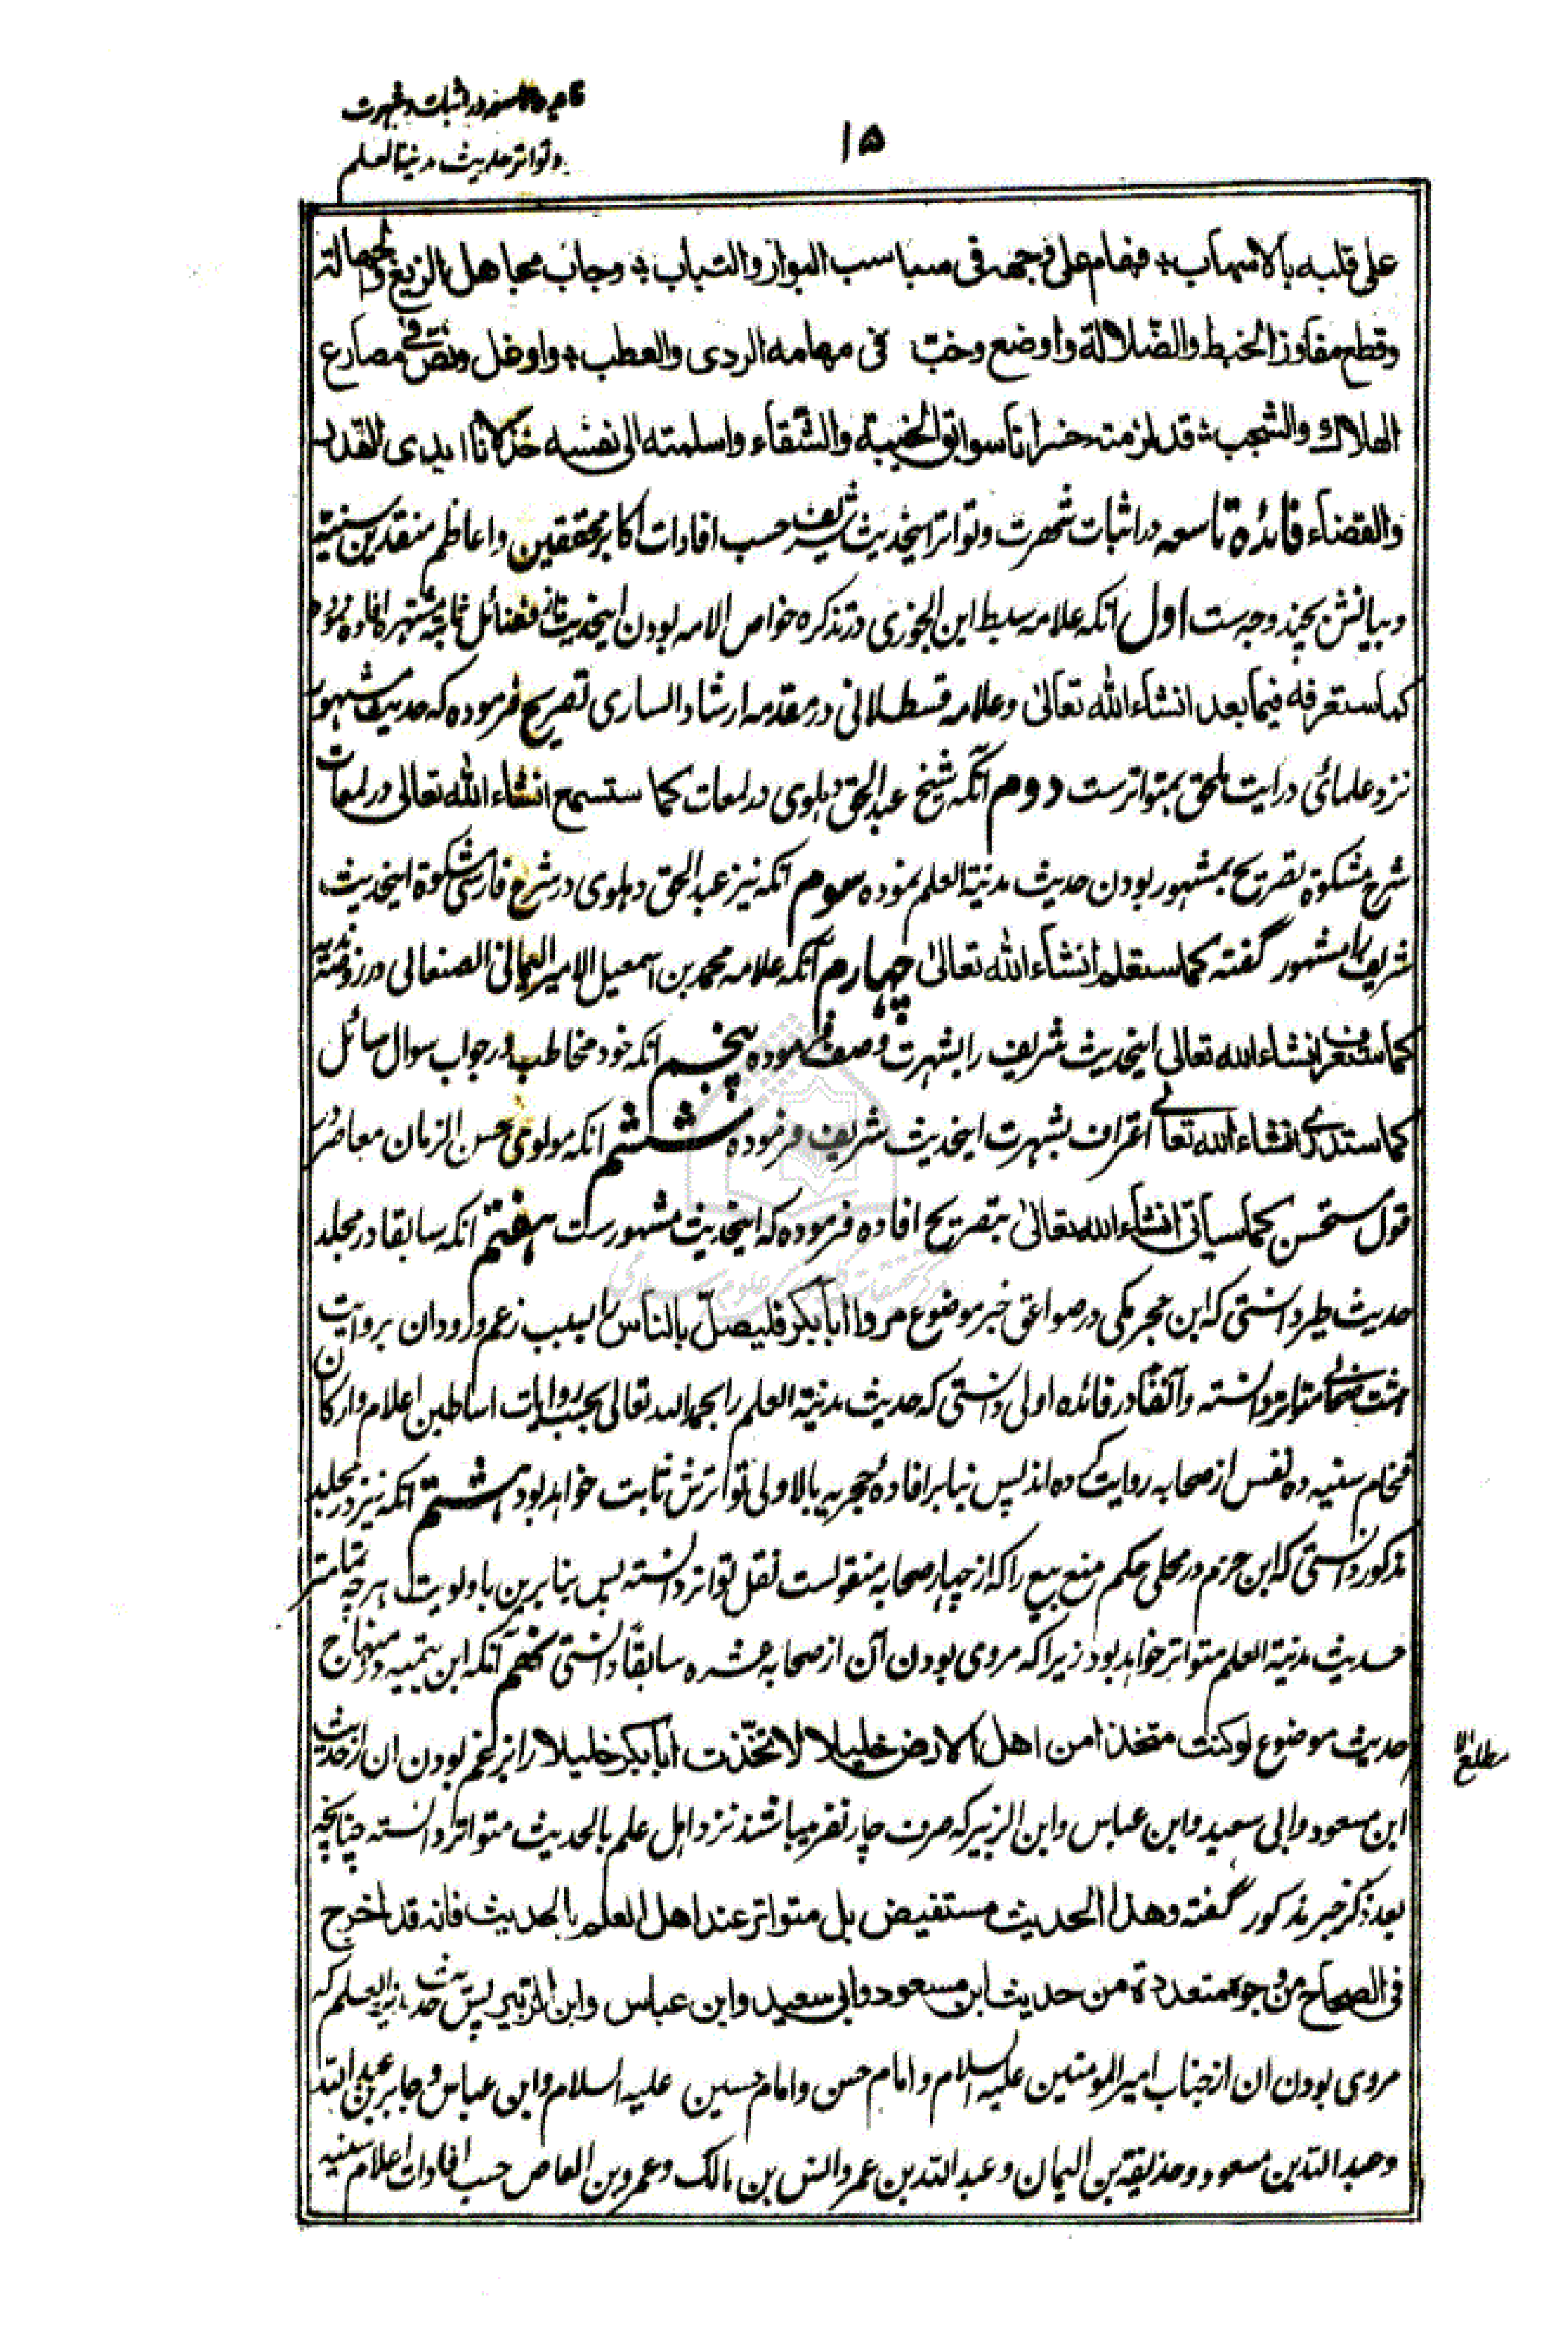 ۱۵
در اثبات شهرت
و تواتر حدیث مدینة العلم
علی قلبه بالاسهاب ؛ فهام علی وجهه فی سباسب البوار والتباب ؛ وجاب مجاهل الزیغ والجهالة
وقطع مفاوز الخبط والضّلالة واوضع وخبّ فی مهامه الردی والعطب ؛ واوغل ونصّ فی مصارع
الهلاک والشجب ؛ قد لزمته خسرانا سوابق الخیبة والشّقاء واسلمته الی نفسه خذلانا ایدی القدر
والقضاء فائده تاسعه در اثبات شهرت و تواتر اینحدیث شریف حسب افادات اکابر محققین و اعاظم منقدین سنیه
و بیانش بچند وجه ست اول آنکه علامه سبط ابن الجوزی در تذکره خواص الامه بودن اینحدیث از فضائل ثابته مشتهره افاده نموده
کما ستعرفه فیما بعد انشاء الله تعالی و علامه قسطلانی در مقدمه ارشاد الساری تصریح فرموده که حدیث مشهور
نزد علمائی درایت ملحق بمتواترست دوم آنکه شیخ عبد الحق دهلوی در لمعات کما ستسمع انشاء الله تعالی در لمعات
شرح مشکوة تصریح بمشهور بودن حدیث مدینة العلم نموده سوم آنکه نیز عبد الحق دهلوی در شرح فارسی مشکوة اینحدیث
شریف را مشهور گفته کما ستعلم انشاء الله تعالی چهارم آنکه علامه محمد بن اسمعیل الامیر الیمانی الصنعانی در روضه ندیه
کما ستعرف انشاء الله تعالی اینحدیث شریف را بشهرت وصف فرموده پنجم آنکه خود مخاطب در جواب سوال سائل
کما ستدری انشاء الله تعالی اعتراف بشهرت اینحدیث شریف فرموده ششم آنکه مولوی حسن الزمان معاصر در
قول مستحسن کما سیاتی انشاء الله تعالی بتصریح افاده فرموده که اینحدیث مشهورست هفتم آنکه سابقا در مجلد
حدیث طیر دانستی که ابن حجر مکی در صواعق خبر موضوع مروا ابا بکر فلیصلّ بالناس را بسبب زعم ورود ان بروایت
هشت صحابی متواتر دانسته و آنفا در فائده اولی دانستی که حدیث مدینة العلم را بحمد الله تعالی بحسب روایات اساطین اعلام و ارکان
فخام سنیه ده نفس از صحابه روایت کرده اند پس بنابر افادهٔ حجریه بالاولی تواترش ثابت خواهد بود هشتم آنکه نیز در مجلد
مذکور دانستی که ابن حزم در محلی حکم منع بیع را که از چهار صحابه منقولست نقل تواتر دانسته پس بنابرین باولویت هر چه تمامتر
حدیث مدینة العلم متواتر خواهد بود زیرا که مروی بودن آن از صحابه عشره سابقا دانستی نهم آنکه ابن تیمیه در منهاج
حدیث موضوع لو کنت متخذا من اهل الارض خلیلا لاتخذت ابا بکر خلیلا را بزعم بودن ان از حدیث
ابن مسعود و ابی سعید و ابن عباس و ابن الزبیر که صرف چار نفر میباشند نزد اهل علم بالحدیث متواتر دانسته چنانچه
بعد ذکر خبر مذکور گفته وهذا الحدیث مستفیض بل متواتر عند اهل العلم بالحدیث فانه قد اخرج
فی الصحاح من وجوه متعددة من حدیث ابن مسعود وابی سعید وابن عباس وابن الزبیر پس حدیث مدینة العلم که
مروی بودن ان از جناب امیر المومنین علیه السلام و امام حسن و امام حسین علیه السلام و ابن عباس و جابر بن عبد الله
و عبد الله بن مسعود و حذیفة بن الیمان و عبد الله بن عمر و انس بن مالک و عمرو بن العاص حسب افادات اعلام سنیه